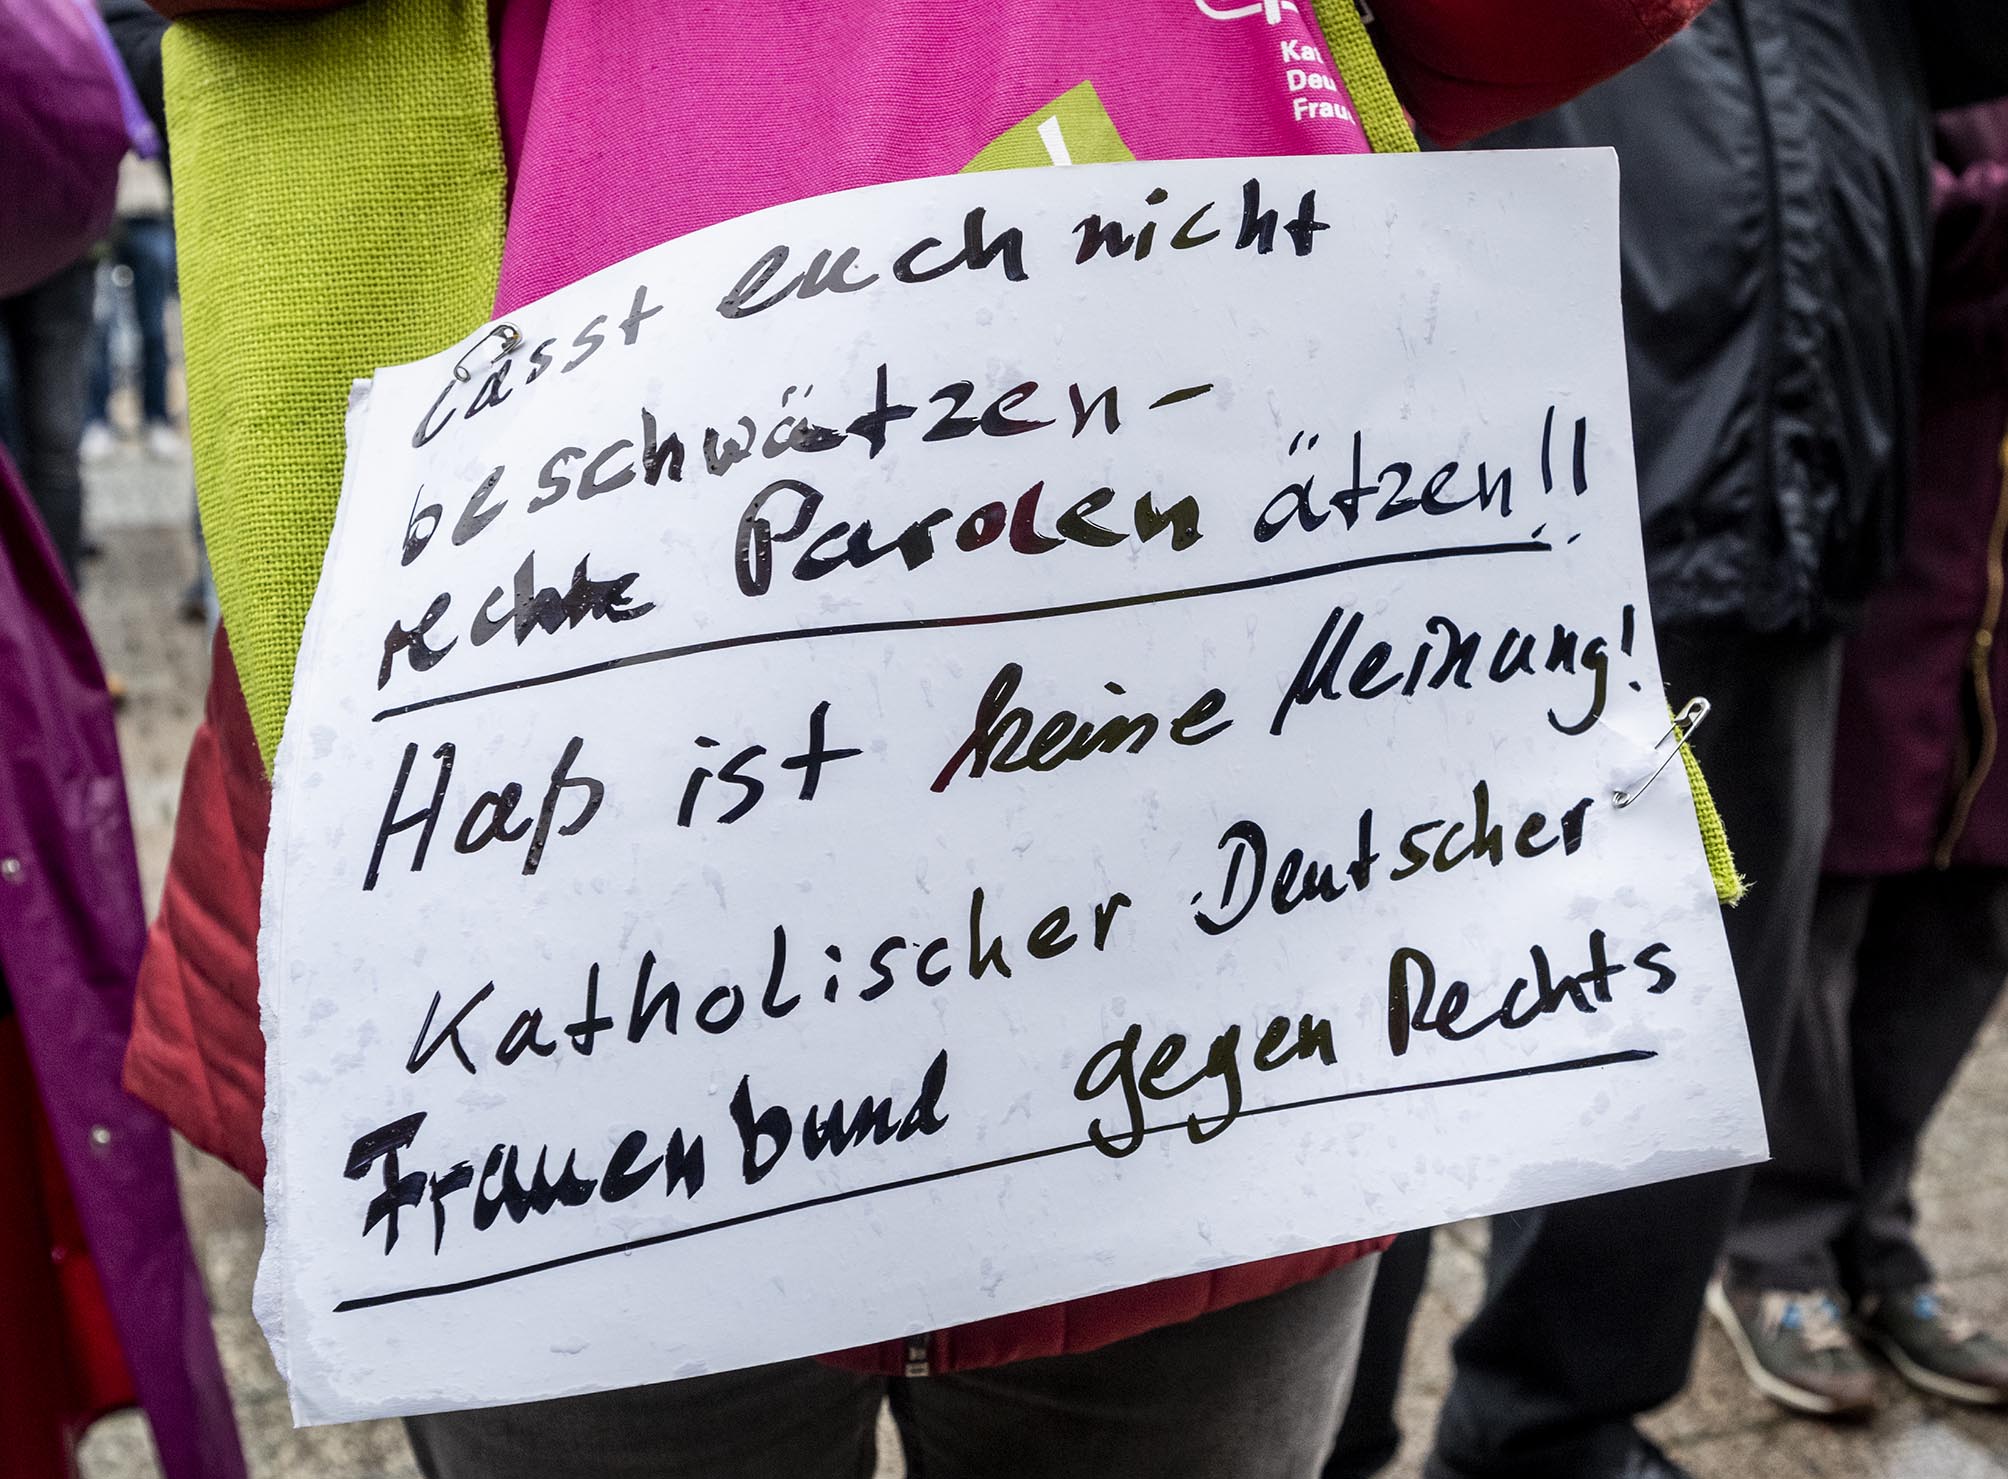 Kat
Deu
Frau
!
Lasst euch nicht
beschwätzen-
rechte Parolen ätzen!!
Haß ist keine Meinung!
Katholischer Deutscher
Frauenbund gegen Rechts